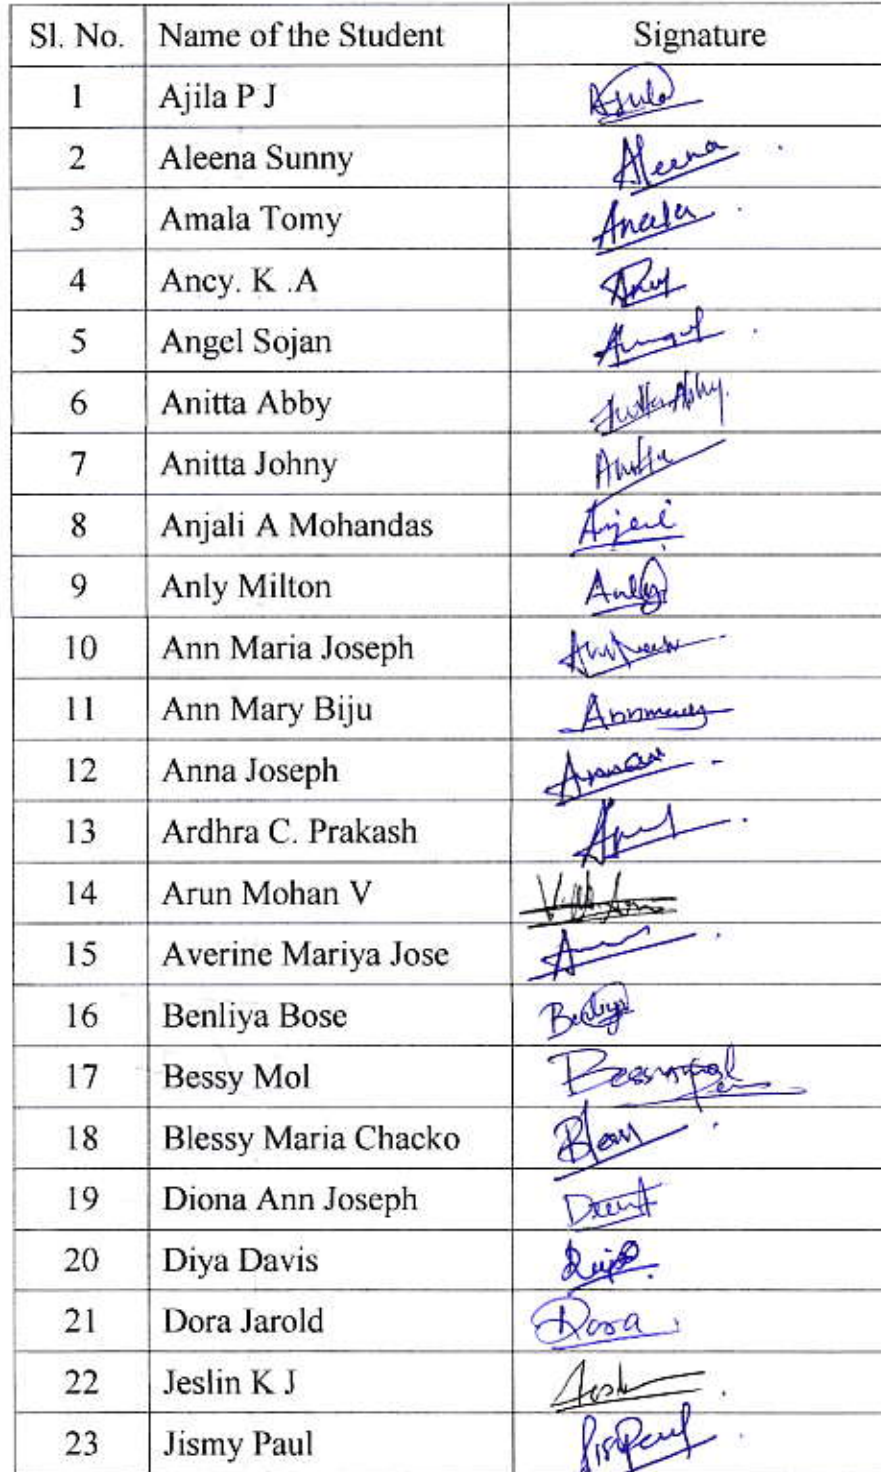 Sl. No. Name of the Student Signature
1 Ajila P J Ajila
2 Aleena Sunny Aleena
3 Amala Tomy Amala
4 Ancy. K .A Ancy
5 Angel Sojan Angel
6 Anitta Abby Anitta Abby
7 Anitta Johny Anitta
8 Anjali A Mohandas Anjali
9 Anly Milton Anly
10 Ann Maria Joseph
11 Ann Mary Biju Annmary
12 Anna Joseph Anna
13 Ardhra C. Prakash
14 Arun Mohan V
15 Averine Mariya Jose
16 Benliya Bose Benliya
17 Bessy Mol Bessymol
18 Blessy Maria Chacko
19 Diona Ann Joseph
20 Diya Davis Diya
21 Dora Jarold Dora
22 Jeslin K J
23 Jismy Paul